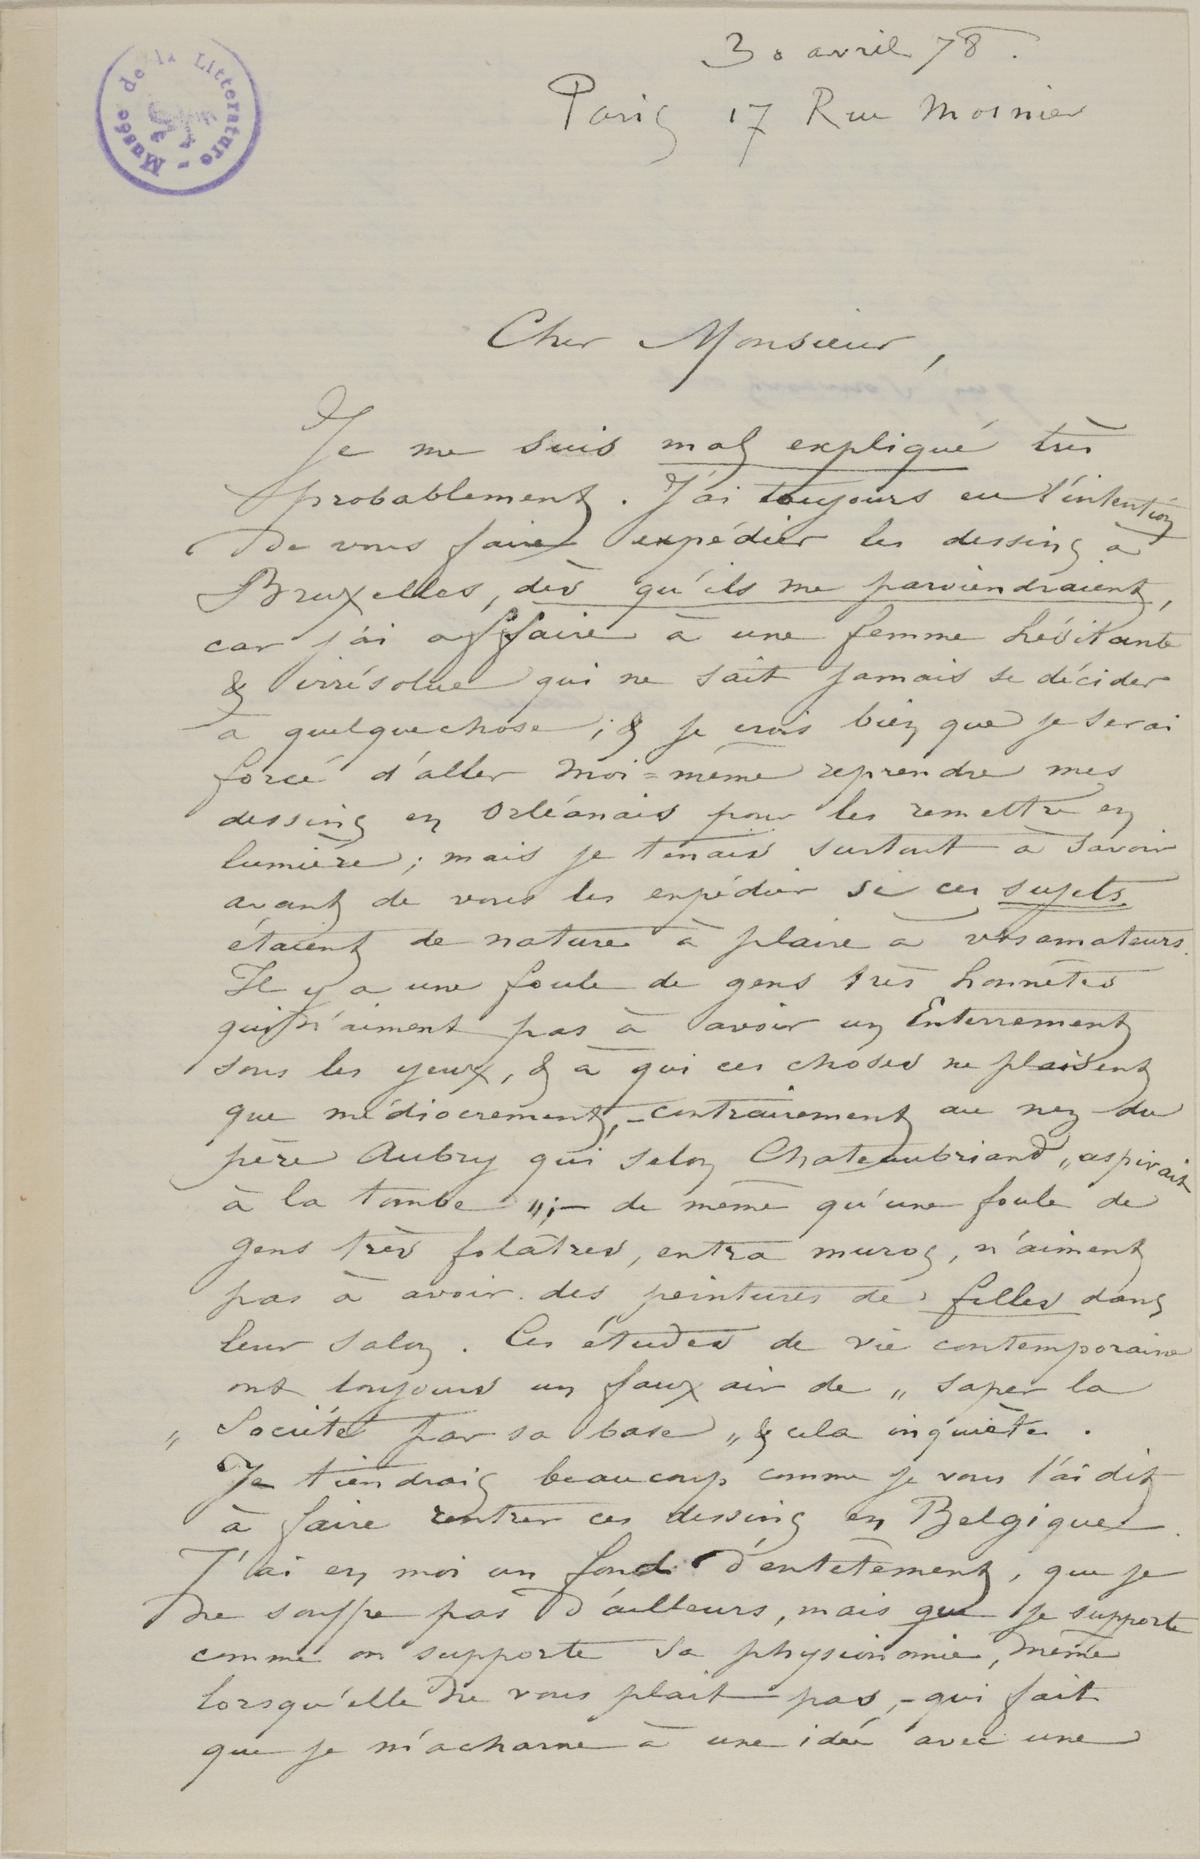 Musée de la Littérature -
30 avril 78.
Paris 17 Rue Mosnier
Cher Monsieur,
Je me suis mal expliqué très
probablement. J'ai toujours eu l'intention
de vous faire expédier les dessins à
Bruxelles, dès qu'ils me parviendraient,
car j'ai affaire à une femme hésitante
& irrésolue qui ne sait jamais se décider
à quelquechose ; & je crois bien que je serai
forcé d'aller moi=même reprendre mes
dessins en Orléanais pour les remettre en
lumière ; mais je tenais surtout à savoir
avant de vous les expédier si ces sujets
étaient de nature à plaire à vos amateurs.
Il y a une foule de gens très honnêtes
qui n'aiment pas à avoir un Enterrement
sous les yeux, & à qui ces choses ne plaisent
que médiocrement, - contrairement au nez du
père Aubry qui, selon Chateaubriand „ aspirait
à la tombe „ ; - de même qu'une foule de
gens très folâtres, entra muros, n'aiment
pas à avoir des peintures de filles dans
leur salon. Ces études de vie contemporaine
ont toujours un faux air de „ saper la
„ Société par sa base „ & cela inquiète.
Je tiendrais beaucoup comme je vous l'ai dit
à faire rentrer ces dessins en Belgique.
J'ai en moi un fond d'entêtement, que je
ne souffre pas d'ailleurs, mais que je supporte
comme on supporte sa physionomie, même
lorsqu'elle ne vous plait pas, - qui fait
que je m'acharne à une idée avec une